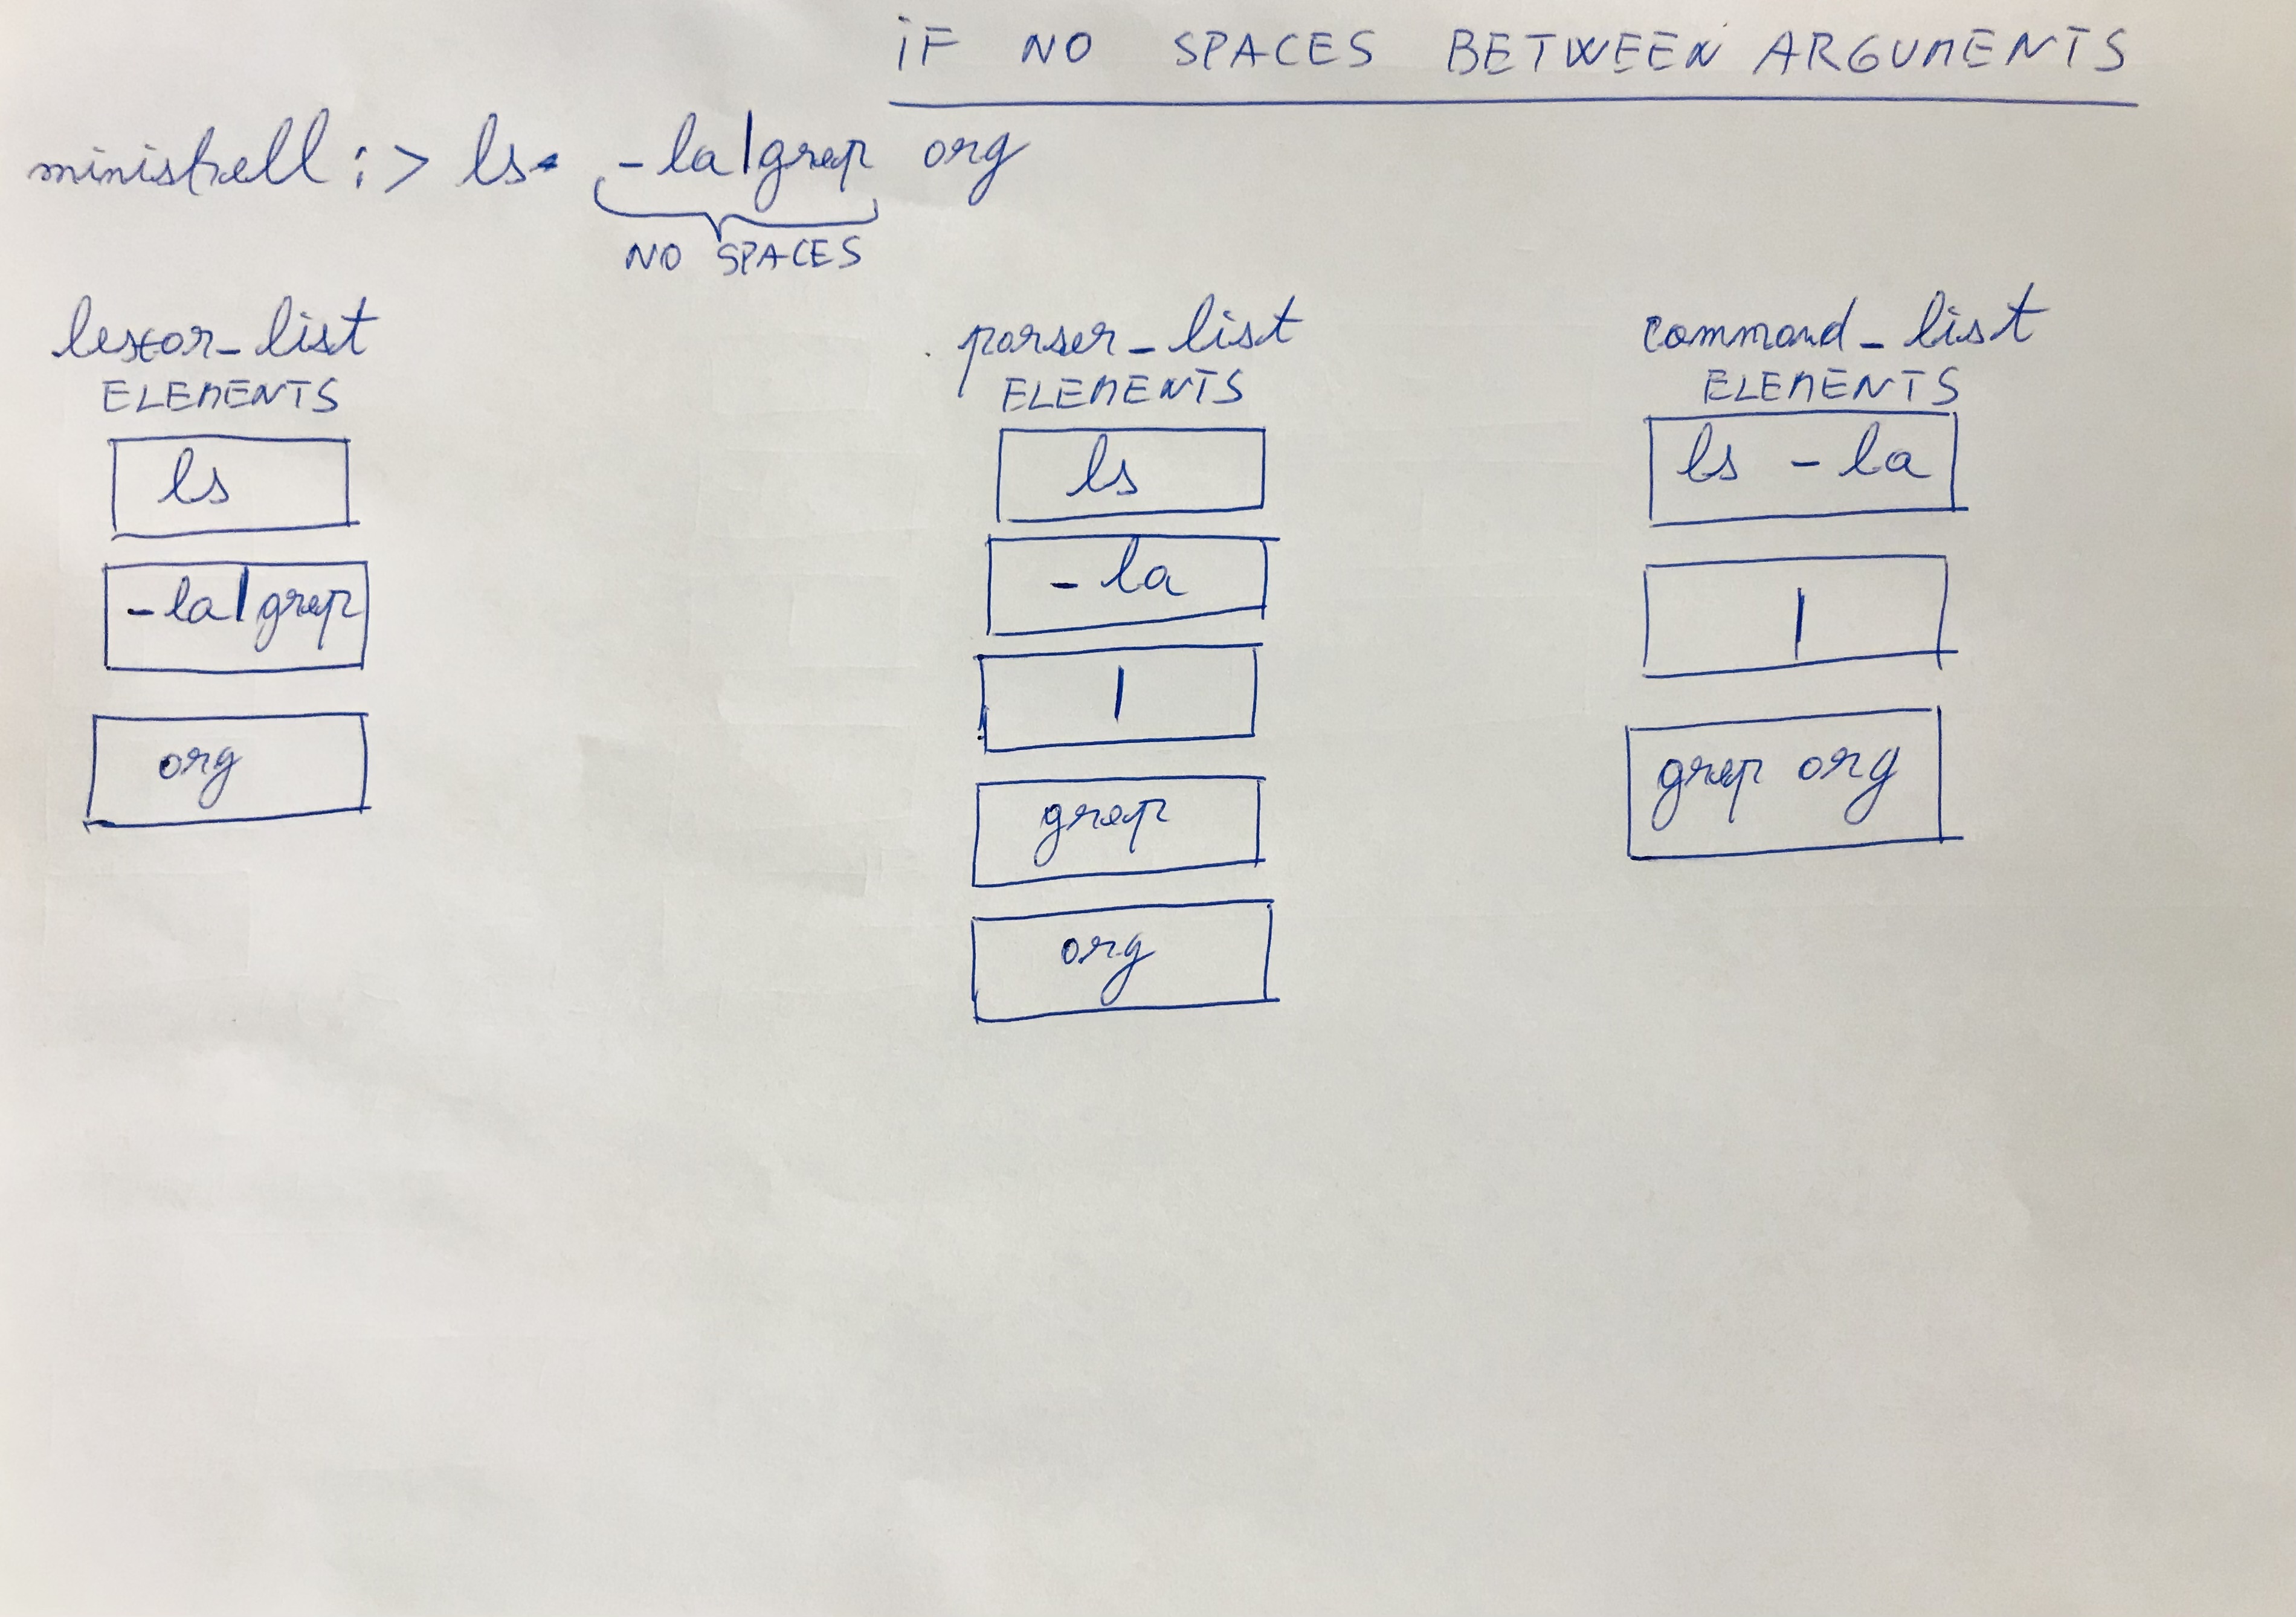 IF NO SPACES BETWEEN ARGUMENTS
minishell :> ls -la|grep org
NO SPACES
lexor_list
ELEMENTS
ls
-la|grep
org
parser_list
ELEMENTS
ls
-la
|
grep
org
command_list
ELEMENTS
ls -la
|
grep org